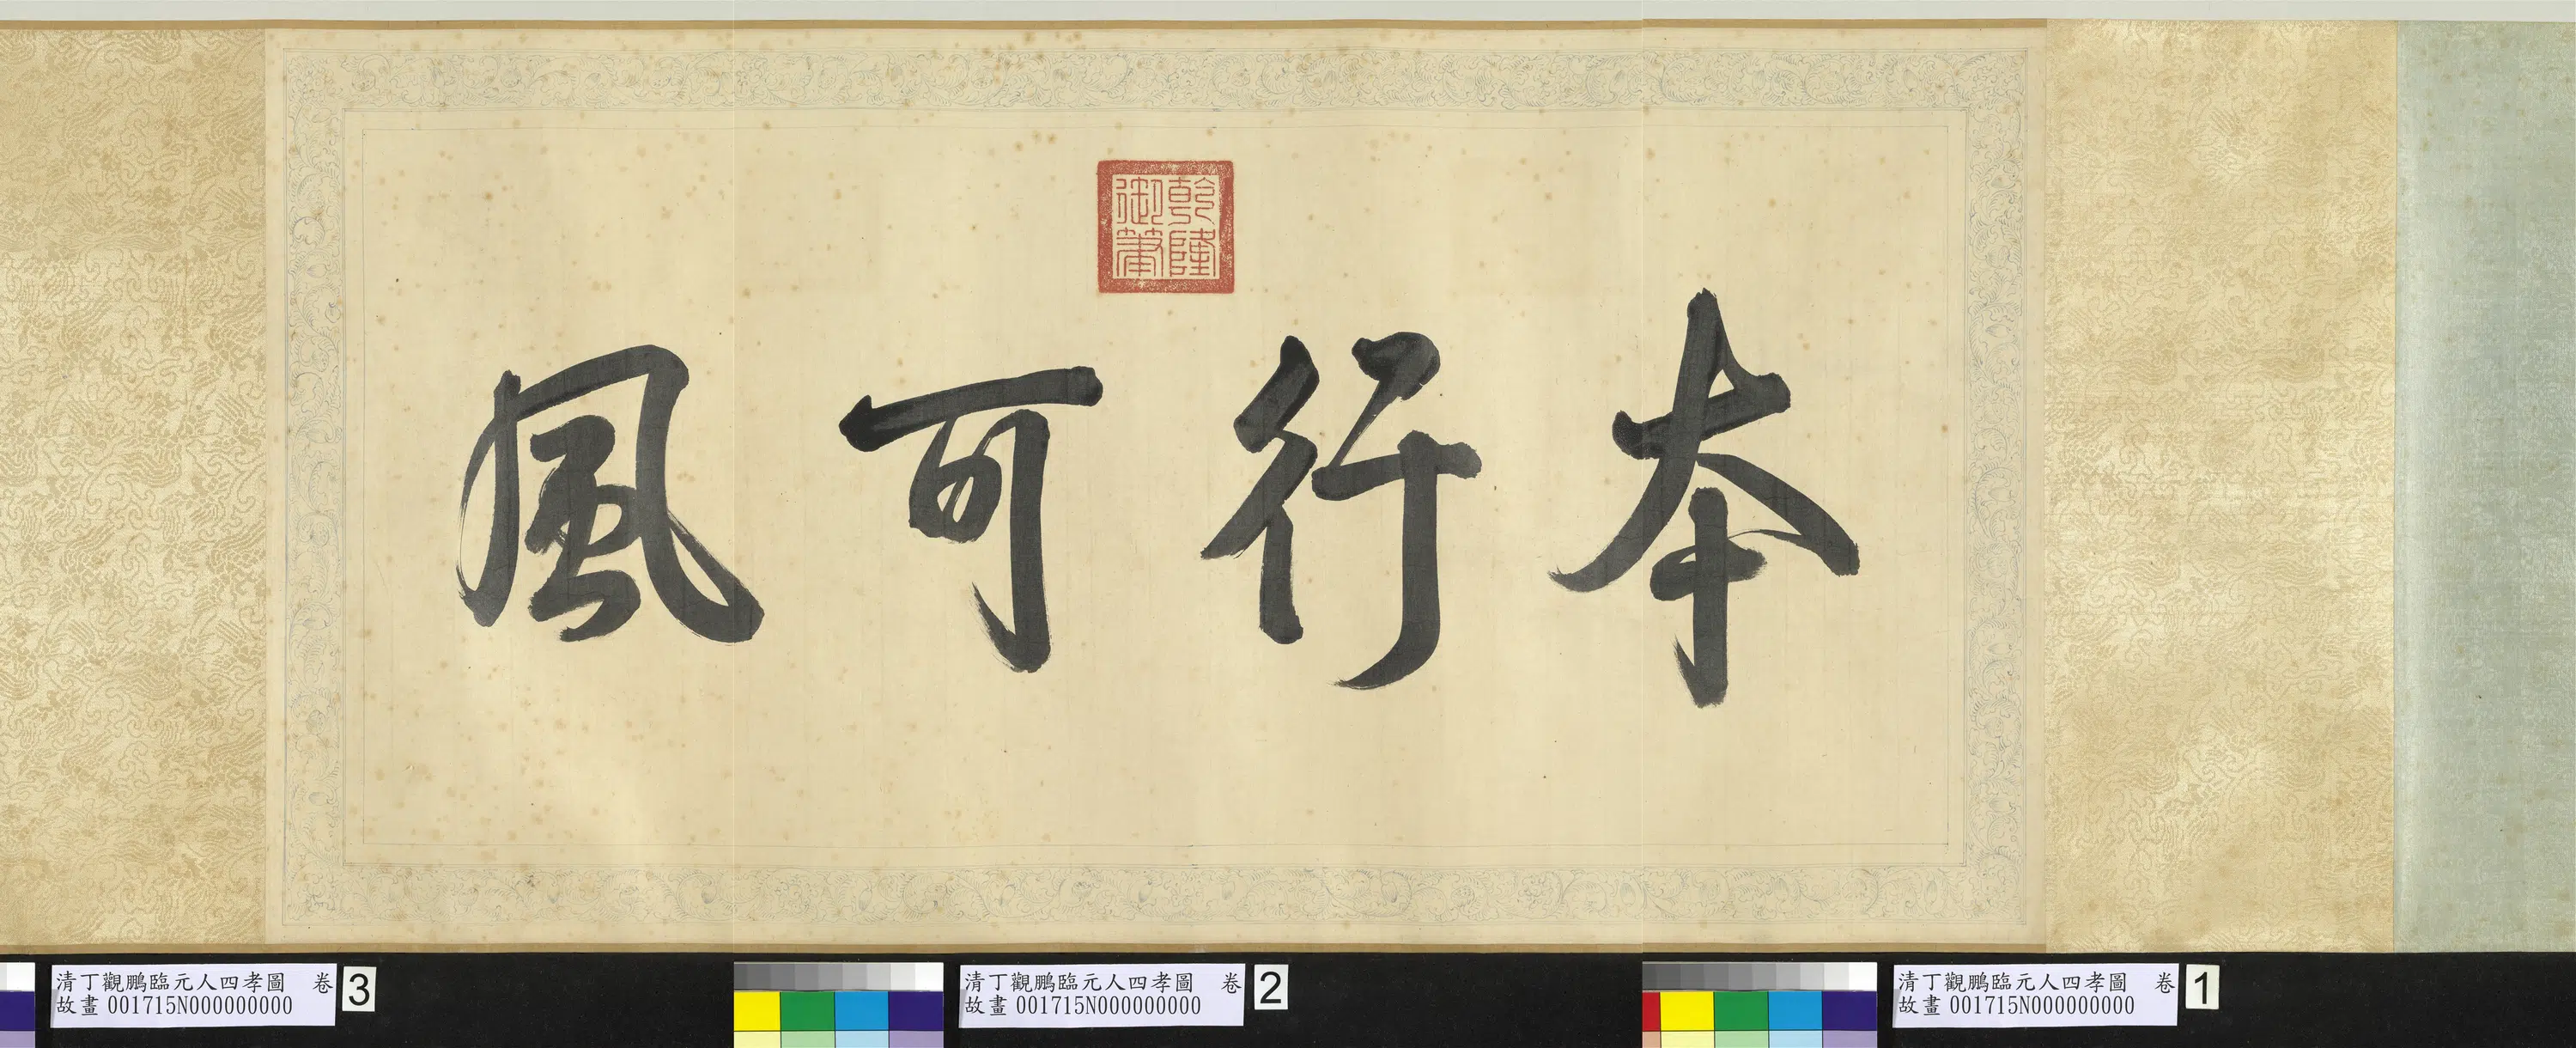 本行可風
乾隆
御筆
清丁觀鵬臨元人四孝圖 卷
故畫 001715N000000000
1
清丁觀鵬臨元人四孝圖 卷
故畫 001715N000000000
2
清丁觀鵬臨元人四孝圖 卷
故畫 001715N000000000
3